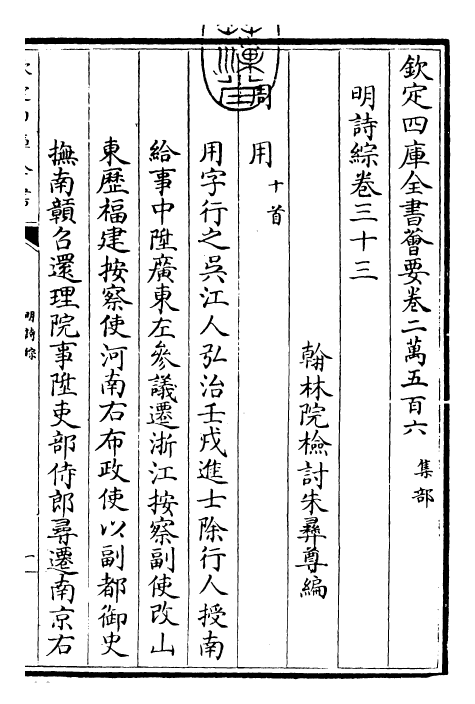 欽定四庫全書薈要卷二萬五百六 集部
明詩綜卷三十三
翰林院檢討朱彝尊編
周用 十首
用字行之吳江人弘治壬戌進士除行人授南
給事中陞廣東左參議遷浙江按察副使改山
東歷福建按察使河南右布政使以副都御史
撫南贛召還理院事陞吏部侍郎尋遷南京右
明詩綜
一